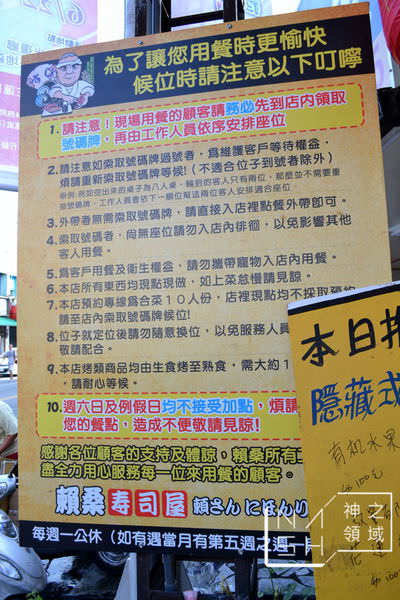 為了讓您用餐時更愉快
候位時請注意以下叮嚀
1. 請注意！現場用餐的顧客請務必先到店內領取
號碼牌，再由工作人員依序安排座位
2. 請注意如索取號碼牌過號者，為維護客戶等待權益，
煩請重新索取號碼牌等候!(不適合位子到號者除外)
舉例:例如空出來的桌子為八人桌，輪到的客人只有兩位，那麼並不需要重
抽號碼牌，工作人員會依下一順位幫這兩位客人安排適合座位.
3. 外帶者無需索取號碼牌，請直接入店裡點餐外帶即可。
4. 索取號碼者，尚無座位請勿入店內徘徊，以免影響其他
客人用餐。
5. 為客戶用餐及衛生權益，請勿攜帶寵物入店內用餐。
6. 本店所有東西均現點現做，如上菜怠慢請見諒。
7. 本店預約專線為合菜10人份，店裡現點均不採取預約
請至店內索取號碼牌候位!
8. 位子就定位後請勿隨意換位，以免服務人員
敬請配合。
9. 本店烤類商品均由生食烤至熟食，需大約1
，請耐心等候。
10. 週六日及例假日均不接受加點，煩請
您的餐點，造成不便敬請見諒!
感謝各位顧客的支持及體諒，賴桑所有工
盡全力用心服務每一位來用餐的顧客。
賴桑壽司屋 賴さん にほんり
每週一公休（如有遇當月有第五週之週一
本日推
隱藏式
有機水果
100元
神之
領域